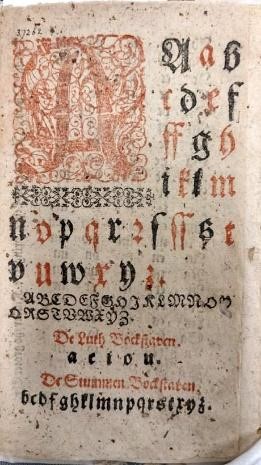 37262
A a b
c d e f
ff g h
i k l m
n o p q r ꝛ s ſſ ß t
v u w x y z.
ABCDEFGHIJKLMNOP
QRSTVWXYZ.
De Luth Böckſtaven.
a e i o u.
De Stummen Bockſtaven.
bcdfghklmnpqrstxyz.